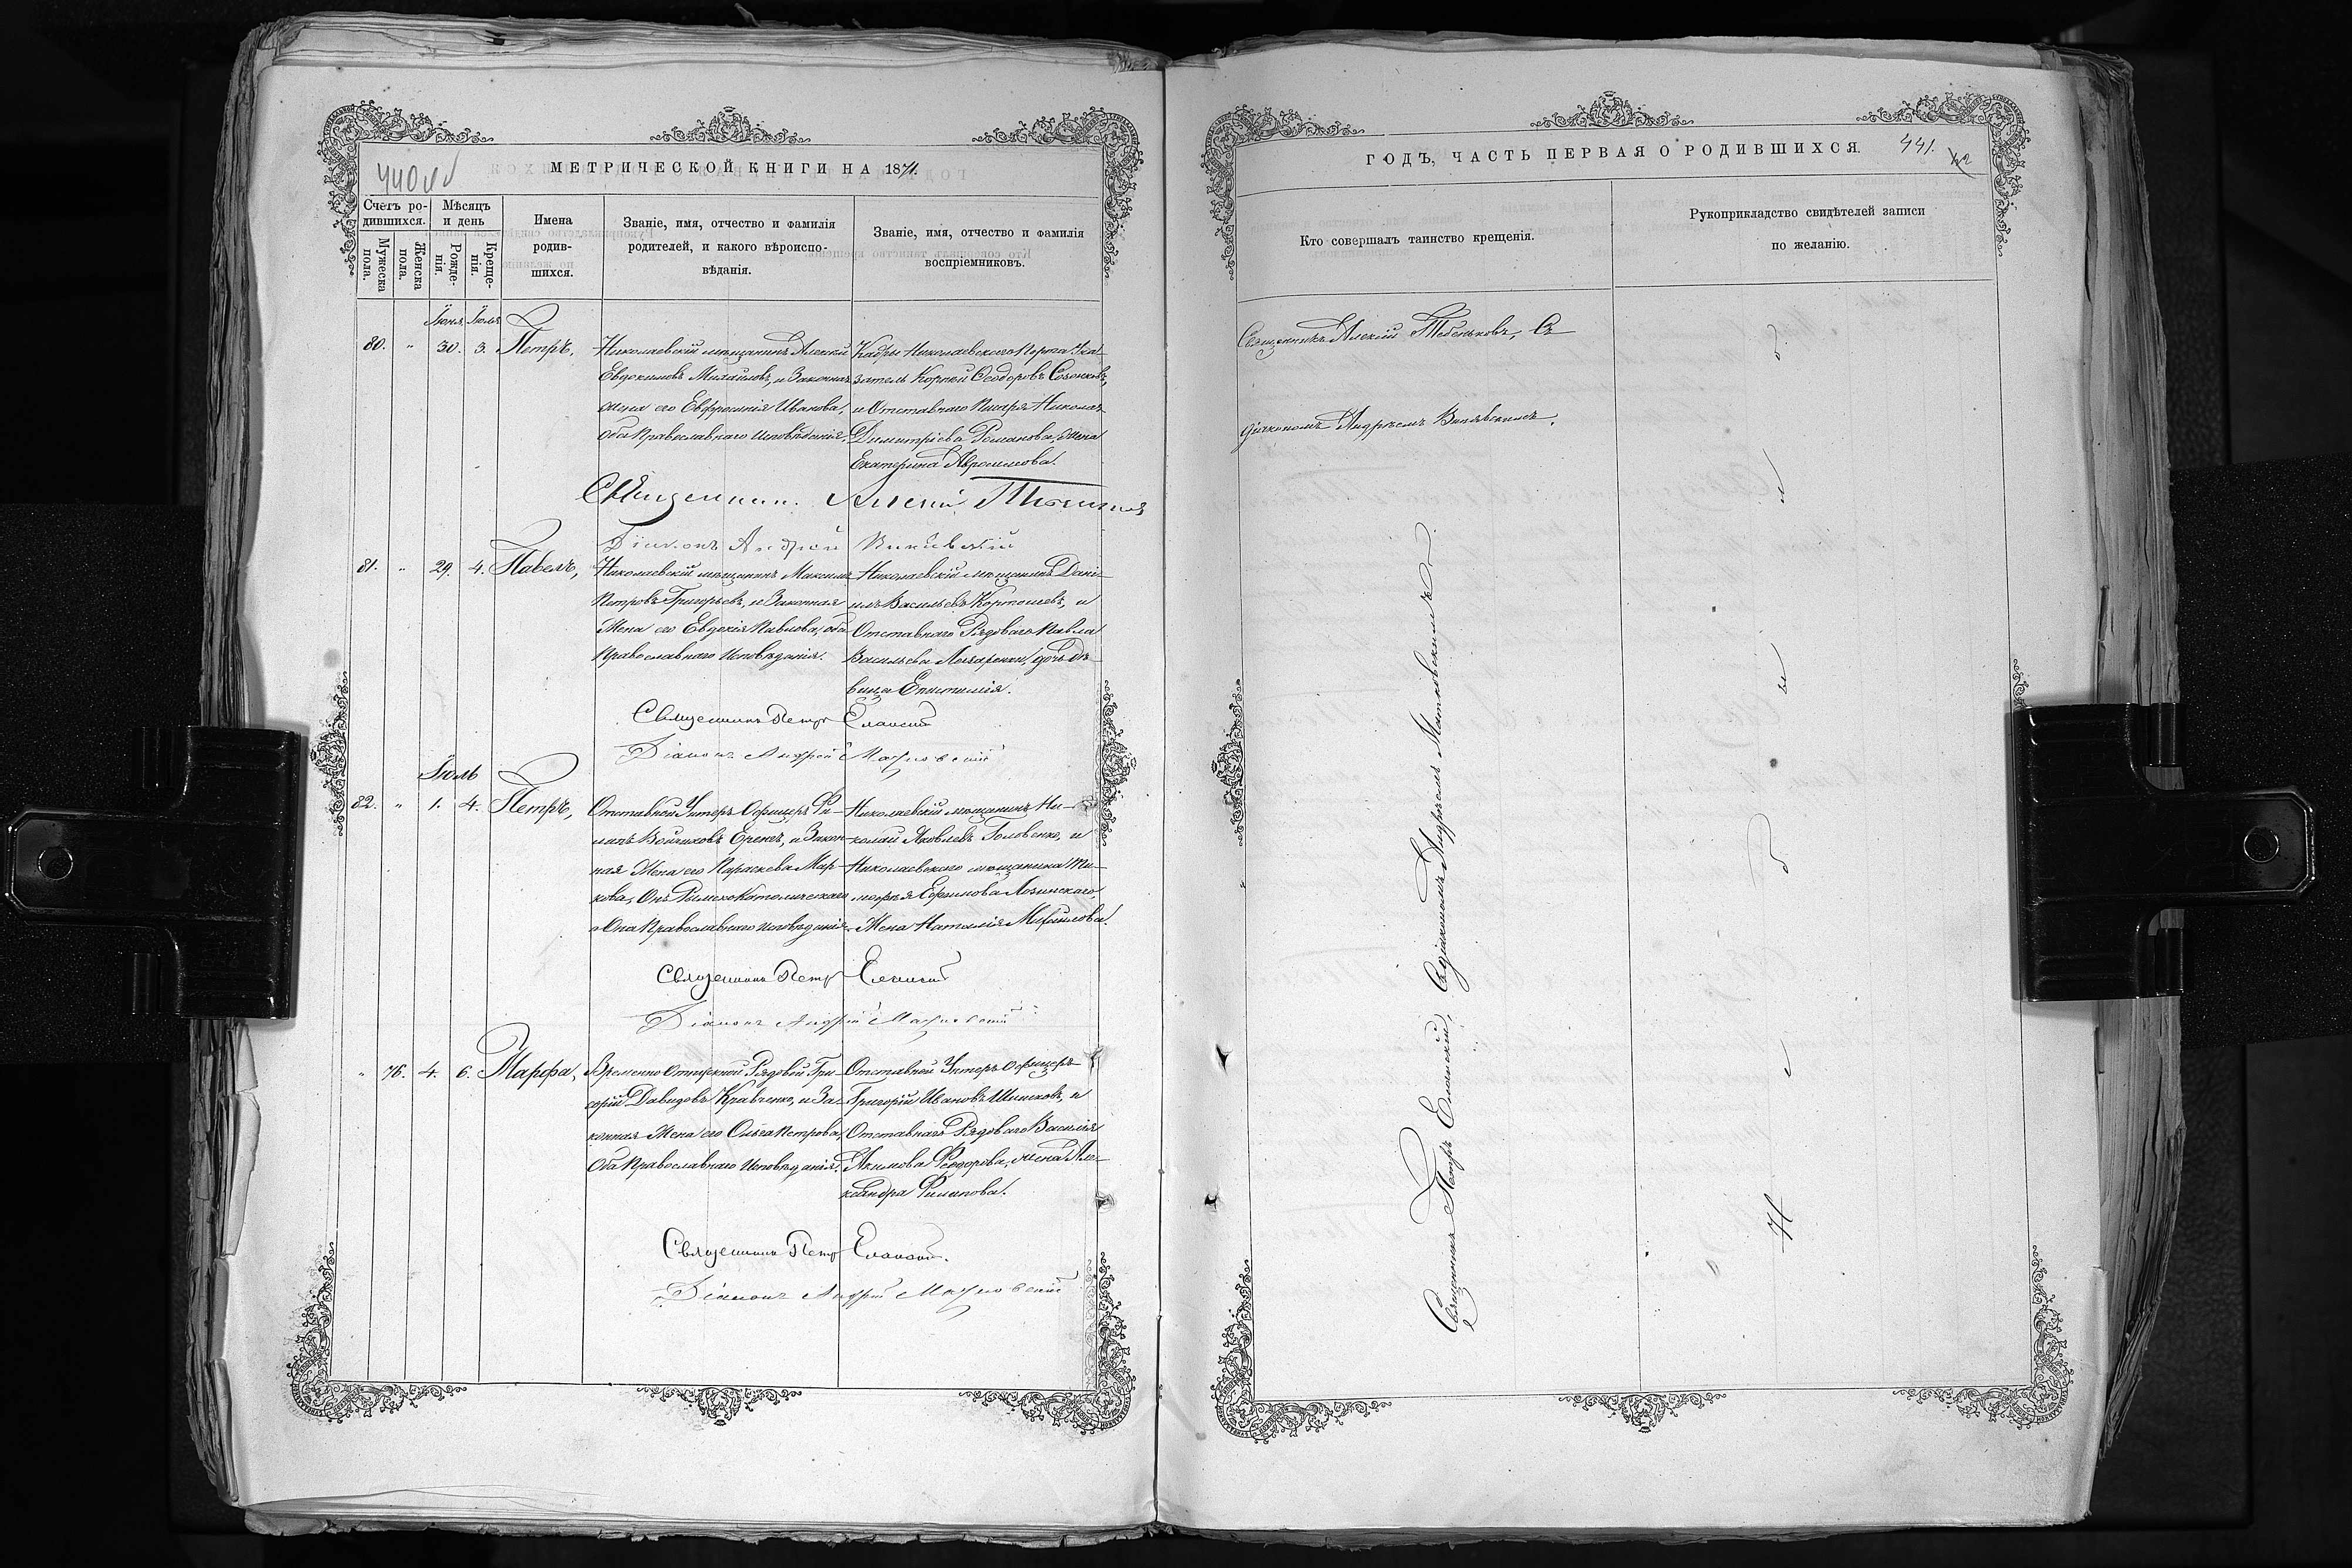 МЕТРИЧЕСКОЙ КНИГИ НА 1871.
Счетъ ро-
дившихся.
Мѣсяцъ
и день
Имена
родив-
шихся.
Званіе, имя, отчество и фамилія
родителей, и какого вѣроиспо-
вѣданія.
Званіе, имя, отчество и фамилія
воспріемниковъ.
Мужеска
пола.
Женска
пола.
Рожде-
нія.
Креще-
нія.
Іюня Іюля
80. " 30. 3. Петръ,
Николаевскій мѣщанинъ Алексѣй
Евдокимовъ Михайловъ, и Законная
жена его Евфросинія Иванова,
оба Православнаго Исповѣданія.
Николаевскаго Порта
Корней Ѳеодоровъ
и Отставнаго Писаря Николая
Димитріева Романова, жена
Екатерина
Священникъ Алексій
Діаконъ Андрей
81. " 29. 4. Павелъ,
Николаевскій мѣщанинъ Максимъ
Петровъ Григорьевъ, и Законная
Жена его Евдокія Павлова, оба
Православнаго Исповѣданія.
Николаевскій мѣщанинъ Дані-
илъ Васильевъ и
Отставнаго Рядоваго Павла
Васильева дочь дѣ-
вица
Священникъ Петръ Еланскій
Діаконъ Андрей Матковскій
Іюль
82. " 1. 4. Петръ,
Отставной Унтеръ-Офицеръ Фи-
липъ и Закон-
ная Жена его Параскева Мар-
кова, Онъ Римско Католическаго
а Она Православнаго Исповѣданія.
Николаевскій мѣщанинъ Ни-
колай Яковлевъ Головенко, и
Николаевскаго мѣщанина Ти-
моѳея Ефимова Лозинскаго
Жена Наталія Михайлова.
Священникъ Петръ Еланскій
Діаконъ Андрей Матковскій
" 76. 4. 6. Марфа,
Временно Отпускной Рядовой Гри-
горій Давидовъ Кравченко, и За-
конная Жена его Ольга Петрова,
Оба Православнаго Исповѣданія.
Отставной Унтеръ Офицеръ
Григорій Ивановъ Шишковъ, и
Отставнаго Рядоваго Василія
Акимова Ѳеодорова, жена Але-
ксандра Филипова.
Священникъ Петръ Еланскій.
Діаконъ Андрей Матковскій
ГОДЪ, ЧАСТЬ ПЕРВАЯ О РОДИВШИХСЯ.
441.
Кто совершалъ таинство крещенія.
Рукоприкладство свидѣтелей записи
по желанію.
Священникъ Алексій Тебеньковъ, Съ
діакономъ Андреемъ
Священникъ Петръ Еланскій, Съ діакономъ Андреемъ Матковскимъ.